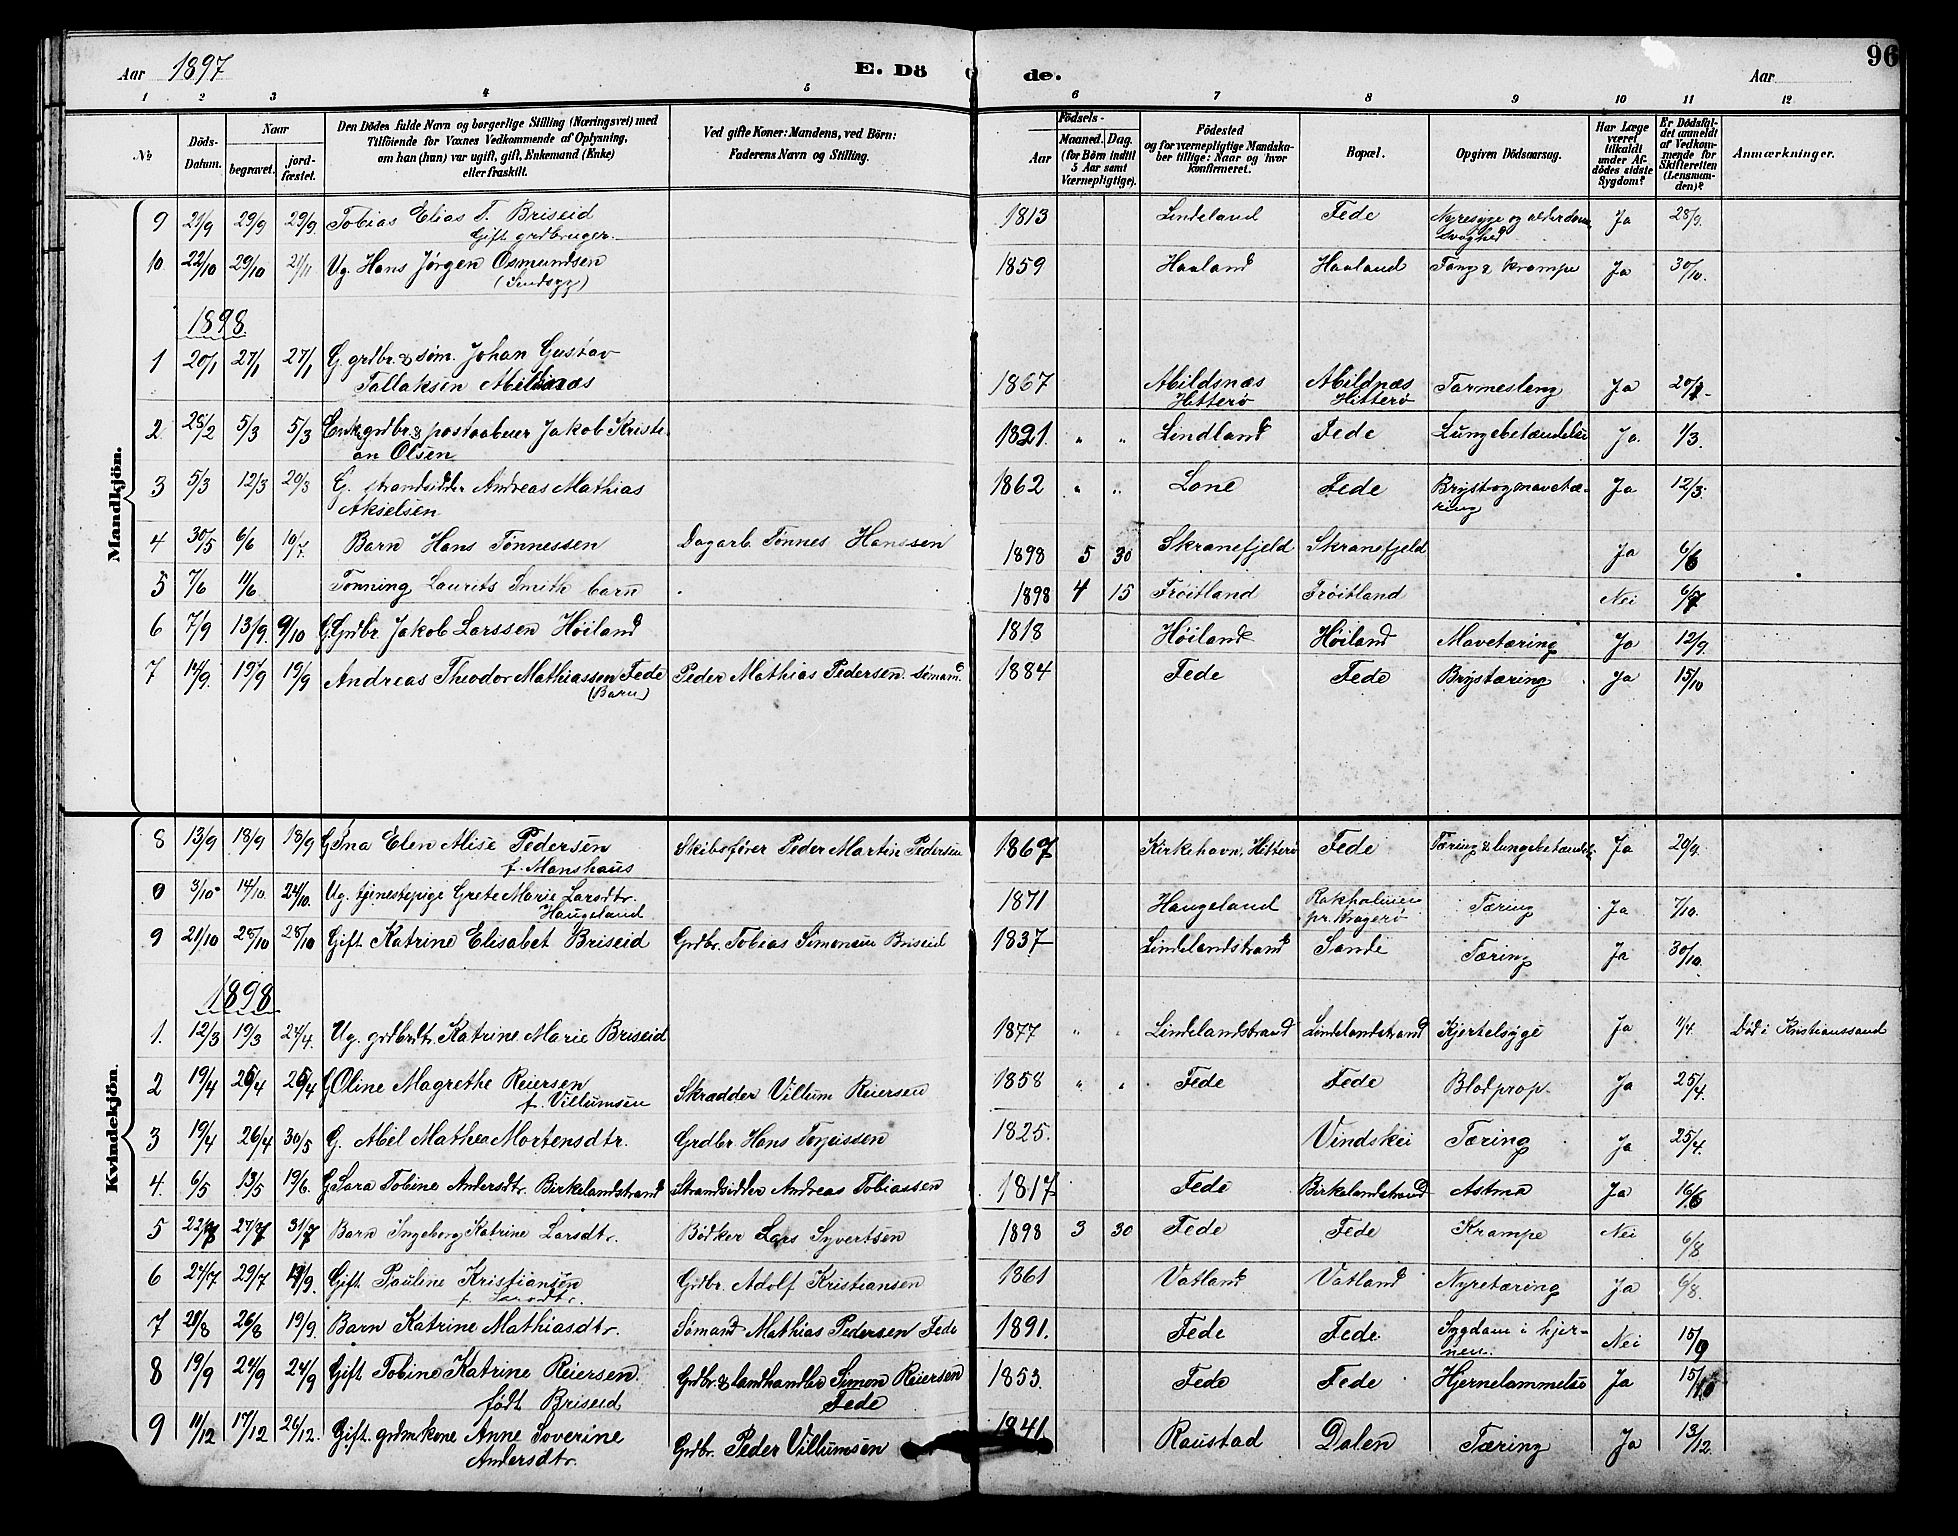 Aar 1897 E. Dö de. Aar 96
1 2 3 4 5 6 7 8 9 10 11 12
No
Döds-Datum.
Naar
begravet. jordfæstet.
Den Dödes fulde Navn og borgerlige Stilling (Næringsvei) med
Tilföiende for Voxnes Vedkommende af Oplysning,
om han (hun) var ugift, gift, Enkemand (Enke)
eller fraskilt.
Ved gifte Koner: Mandens, ved Börn:
Faderens Navn og Stilling.
Födsels-
Aar
Maaned. Dag.
(for Börn indtil
5 Aar samt
Værnepligtige).
Födested
og for værnepligtige Mandska-
ber tillige: Naar og hvor
konfirmeret.
Bopæl.
Opgiven Dödsaarsag.
Har Læge
været
tilkaldt
under Af-
dödes sidste
Sygdom?
Er Dödsfal-
det anmeldt
af Vedkom-
mende for
Skifteretten
(Lensman-
den)?
Anmærkninger.
Mandkjön.
9 21/9 29/9 29/9 Tobias Elias T. Briseid 1813 Lindeland Fede Nyresyge og alderdoms Ja 28/9
Gift grdbruger. svaghed
10 22/10 29/10 21/11 Ug. Hans Jørgen Osmundsen 1859 Haaland Haaland Tang & krampe Ja 30/10.
(Sindsyg)
1898.
1 20/1 27/1 27/1 G. grdbr. & søm. Johan Gustav
Tallaksen Abildsnæs 1867 Abildsnæs Abildnæs Tarmesleng Ja
Hitterø Hitterø
2 28/2 5/3 5/3 Enk. grdbr. & postaabner Jakob Kristi- 1821. " " Lindland Fede Lungebetændelse Ja. 1/3.
an Olsen
3 5/3 12/3 20/3 G. strandsidder Andreas Mathias 1862 " " Lone Fede Bryst og mavetæ- Ja 12/3.
Akselsen ring
4 30/5 6/6 10/7. Barn Hans Tønnessen Dagarb. Tønnes Hanssen 1898 5 30 Skranefjeld Skranefjeld Ja 6/6
5 7/6 11/6 Tønning Laurits Smith barn 1898 4 15 Frøitland Frøitland Nei 6/7
6 7/9 13/9. 9/10 G. Grdbr Jakob Larssen Høiland 1818 Høiland Høiland Mavetæring Ja 12/9.
7 14/9. 19/9 19/9 Andreas Theodor Mathiassen Fede Peder Mathias Pedersen. sømand. 1884 Fede Fede Brystæring Ja 15/10
(Barn)
Kvindekjön.
8 13/9 18/9 18/9 G. Ina Elen Alise Pedersen Skibsfører Peder Martin Pedersen 1867 Kirkehavn, Hitterø Fede Tæring & lungebetændelse Ja 20/9.
f. Monshaus
0 3/10 14/10. 24/10. Ug. tjenestepige Grete Marie Larsdtr. 1871 Haugeland Rakholmen Tæring Ja 7/10.
Haugeland pr. Kragerø
9 21/10 28/10 28/10 Gift Katrine Elisabet Briseid Grdbr. Tobias Simonsen Briseid 1837 Lindelandstrand Sande Tæring Ja 30/10.
1898
1. 12/3 19/3 24/4. Ug. grdbrdtr. Katrine Marie Briseid 1877 " " Lindelandstrand Lindelandstrand Kjertelsyge Ja 11/4. Død i Kristianssand
2 19/4 26/4 26/4 G. Oline Magrethe Reiersen Skrædder Villum Reiersen 1858 " " Fede Fede Blodprop. Ja 25/4.
f. Villumsen
3 19/4 26/4 30/5 G. Abel Mathea Mortensdtr. Grdbr. Hans Torjuissen 1825. Vindskei Tæring Ja 25/4.
4. 6/5 13/5 19/6. G. Sara Tobine Andersdtr. Birkelandstrand Strandsidder Andreas Tobiassen 1817 Fede Birkelandstrand Astma Ja 16/6
5 22/7 27/7 31/7 Barn Ingeborg Katrine Larsdtr. Bødker Lars Syvertsen 1898 3 30 Fede Fede Krampe Nei 6/8
6 24/7 29/7 19/9. Gift Pauline Kristiansen Grdbr. Adolf Kristiansen 1861 Vatland Vatland Nyretæring Ja 6/8.
f. Larsdtr.
7 21/8 26/8 19/9. Barn Katrine Mathiasdtr. Sømand Mathias Pedersen Fede 1891. Fede Fede. Sygdom i hjer- Nei 15/9
nen.
8 19/9 24/9 24/9 Gift Tobine Katrine Reiersen Grdbr. & landhandler Simon Reiersen 1853. Fede Fede Hjernelammelse Ja 15/10
født Briseid Fede
9 11/12 17/12 26/12. Gift. grdmkone Anne Soverine Grdbr. Peder Villumsen 1841 Raustad Dalen Tæring Ja 13/12.
Andersdtr.